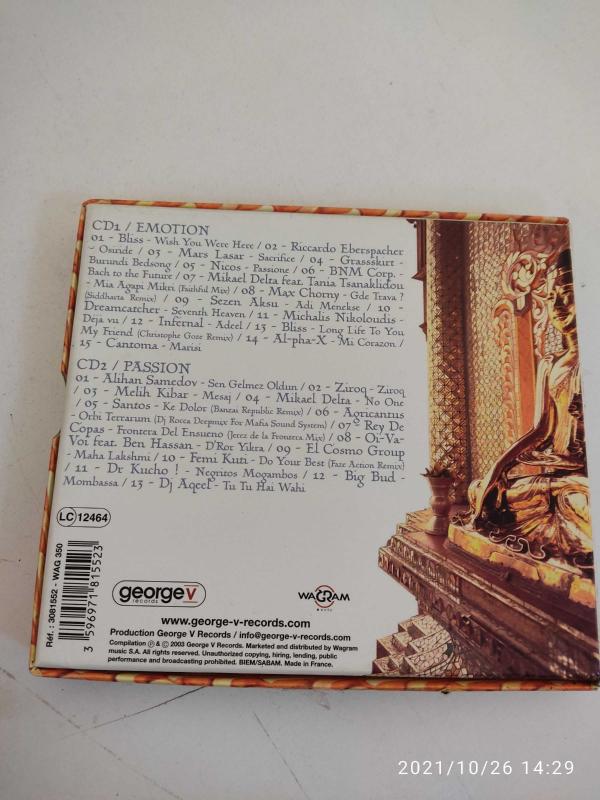 CD1 / EMOTION
01 - Bliss - Wish You Were Here / 02 - Riccardo Eberspacher
- Osinde / 03 - Mars Lasar - Sacrifice / 04 - Grassskirt -
Burundi Bedsong / 05 - Nicos - Passione / 06 - BNM Corp. -
Bach to the Future / 07 - Mikael Delta feat. Tania Tsanaklidou
- Mia Agapi Mikri (Faithful Mix) / 08 - Max Chorny - Gde Trava ?
(Siddharta Remix) / 09 - Sezen Aksu - Adi Menekse / 10 -
Dreamcatcher - Seventh Heaven / 11 - Michalis Nikoloudis -
Deja vu / 12 - Infernal - Adeel / 13 - Bliss - Long Life To You
My Friend (Christophe Goze Remix) / 14 - Al-pha-X - Mi Corazon /
15 - Cantoma - Marisi
CD2 / PASSION
01 - Alihan Samedov - Sen Gelmez Oldun / 02 - Ziroq - Ziroq
/ 03 - Melih Kibar - Mesaj / 04 - Mikael Delta - No One
/ 05 - Santos - Ke Dolor (Banzai Republic Remix) / 06 - Agricantus
- Orbi Terrarum (Dj Rocca Deepmix For Mafia Sound System) / 07 - Rey De
Copas - Frontera Del Ensueno (Jerez de la Frontera Mix) / 08 - Oi-Va-
Voi feat. Ben Hassan - D'Ror Yikra / 09 - El Cosmo Group
- Maha Lakshmi / 10 - Femi Kuti - Do Your Best (Faze Action Remix)
/ 11 - Dr Kucho ! - Negritos Mogambos / 12 - Big Bud -
Mombassa / 13 - Dj Aqeel - Tu Tu Hai Wahi
LC 12464
Réf. : 3081552 - WAG 350
3 596971 815523
george V
records
WAGRAM
music
www.george-v-records.com
Production George V Records / info@george-v-records.com
Compilation ℗ & © 2003 George V Records. Marketed and distributed by Wagram
music S.A. All rights reserved. Unauthorized copying, hiring, lending, public
performance and broadcasting prohibited. BIEM/SABAM. Made in France.
2021/10/26 14:29